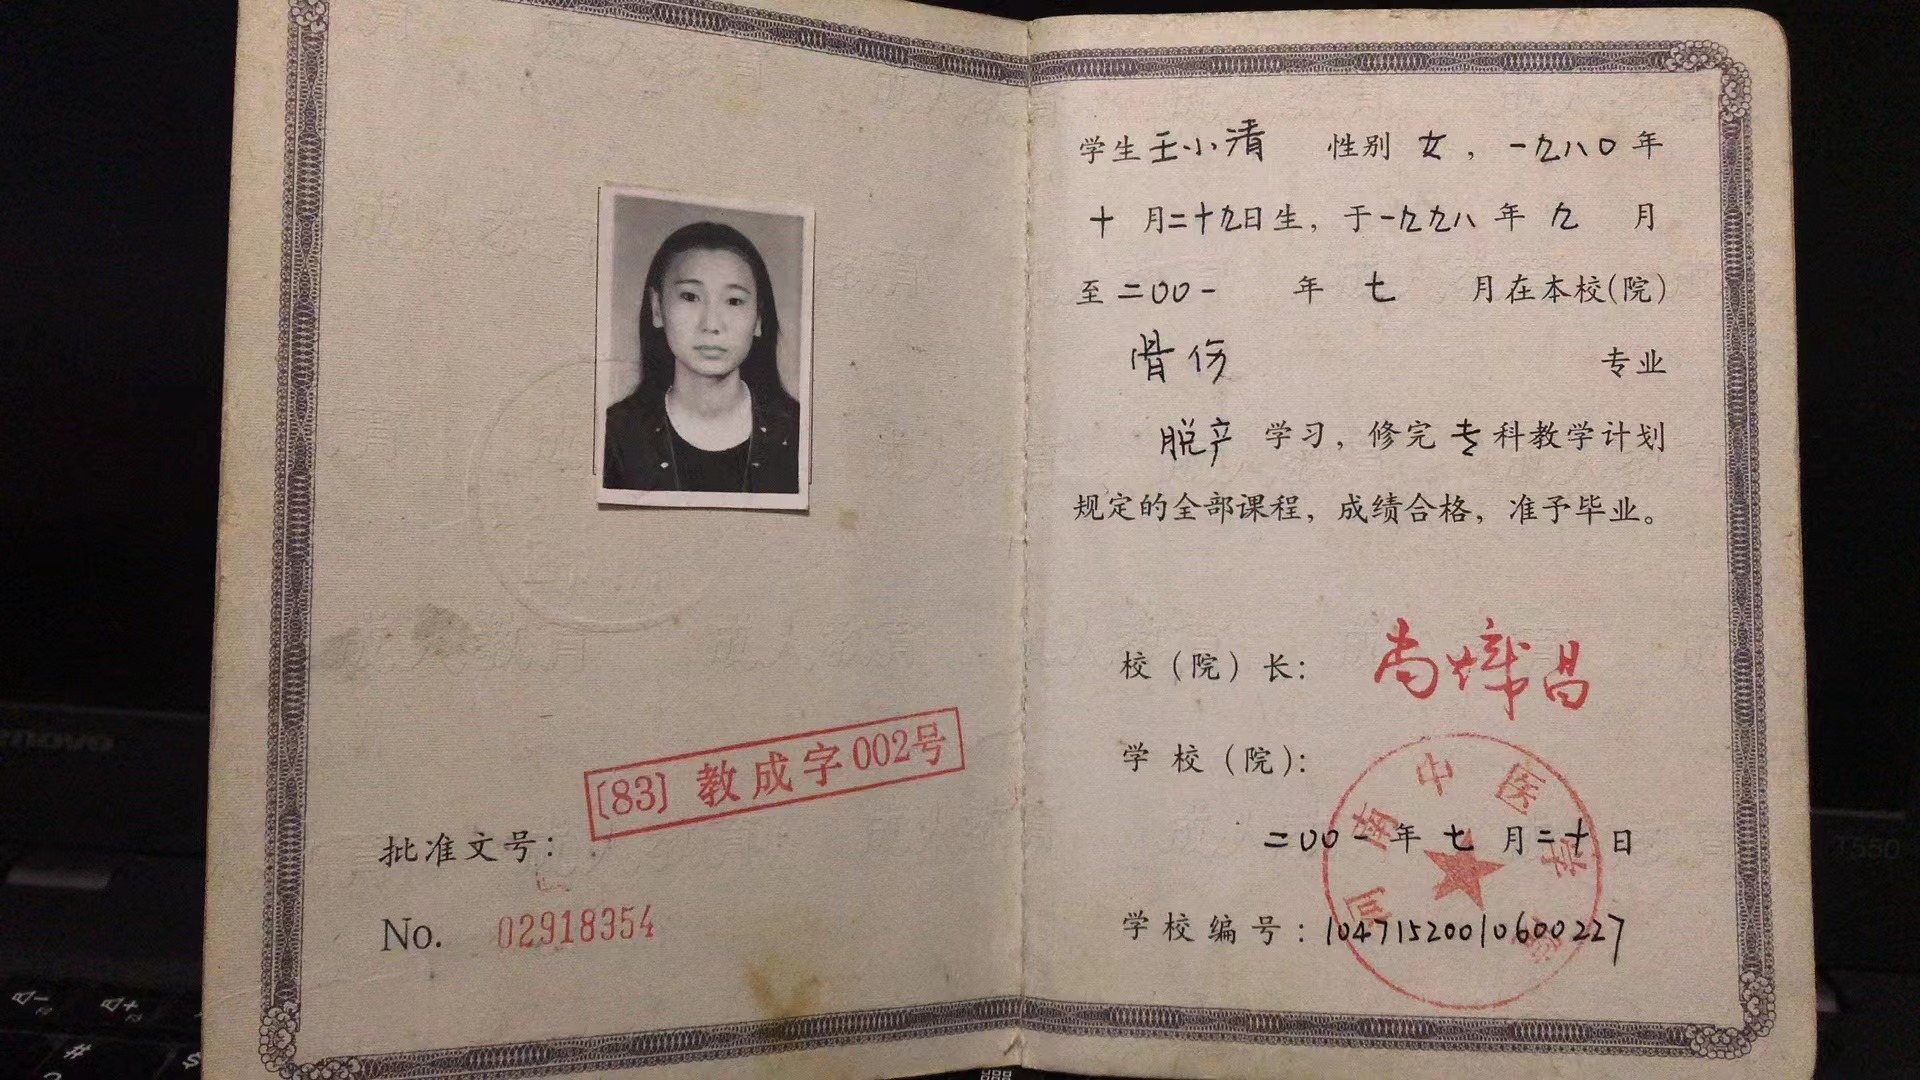 [83] 教成字002号
批准文号：
No. 02918354
学生王小清 性别 女，一九八〇年
十 月二十九日生，于一九九八 年 九 月
至二〇〇一 年 七 月在本校(院)
骨伤 专业
脱产 学习，修完专科教学计划
规定的全部课程，成绩合格，准予毕业。
校（院）长：
学 校（院）：
河南中医学院
二〇〇一年 七 月二十日
学校编号：10471520010600227
T550